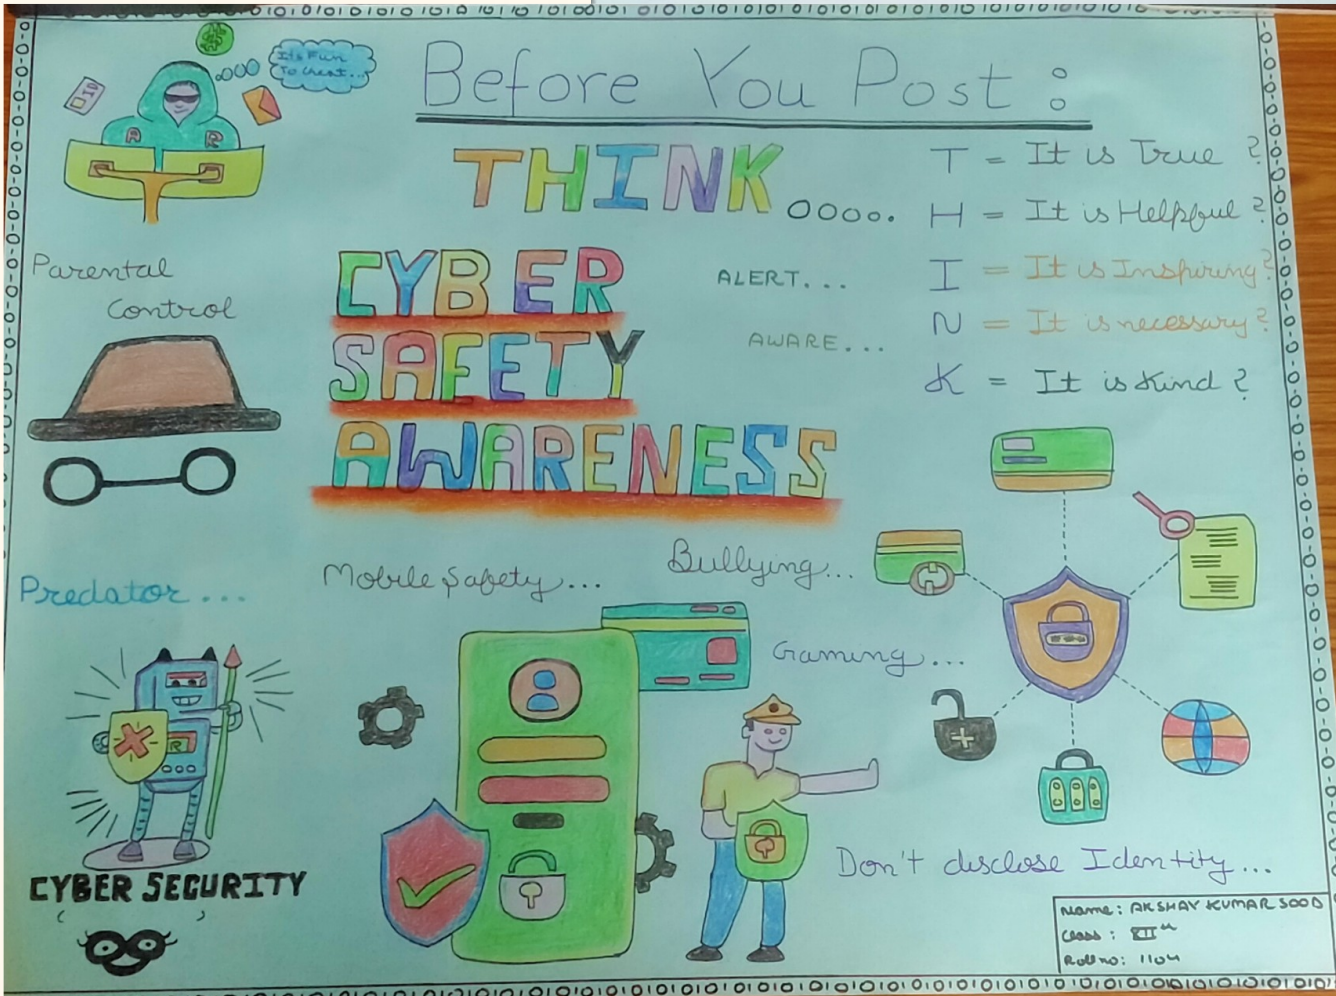 It's Fun
To Cheat...
ID
A R
Before You Post :
THINK....
T = It is True ?
H = It is Helpful ?
I = It is Inspiring ?
N = It is necessary ?
K = It is Kind ?
Parental
Control
CYBER
SAFETY
AWARENESS
ALERT...
AWARE...
Predator...
Mobile Safety...
Bullying...
Gaming...
R
CYBER SECURITY
Don't disclose Identity...
Name : AKSHAY KUMAR SOOD
Class : XIIth
Roll no : 1104